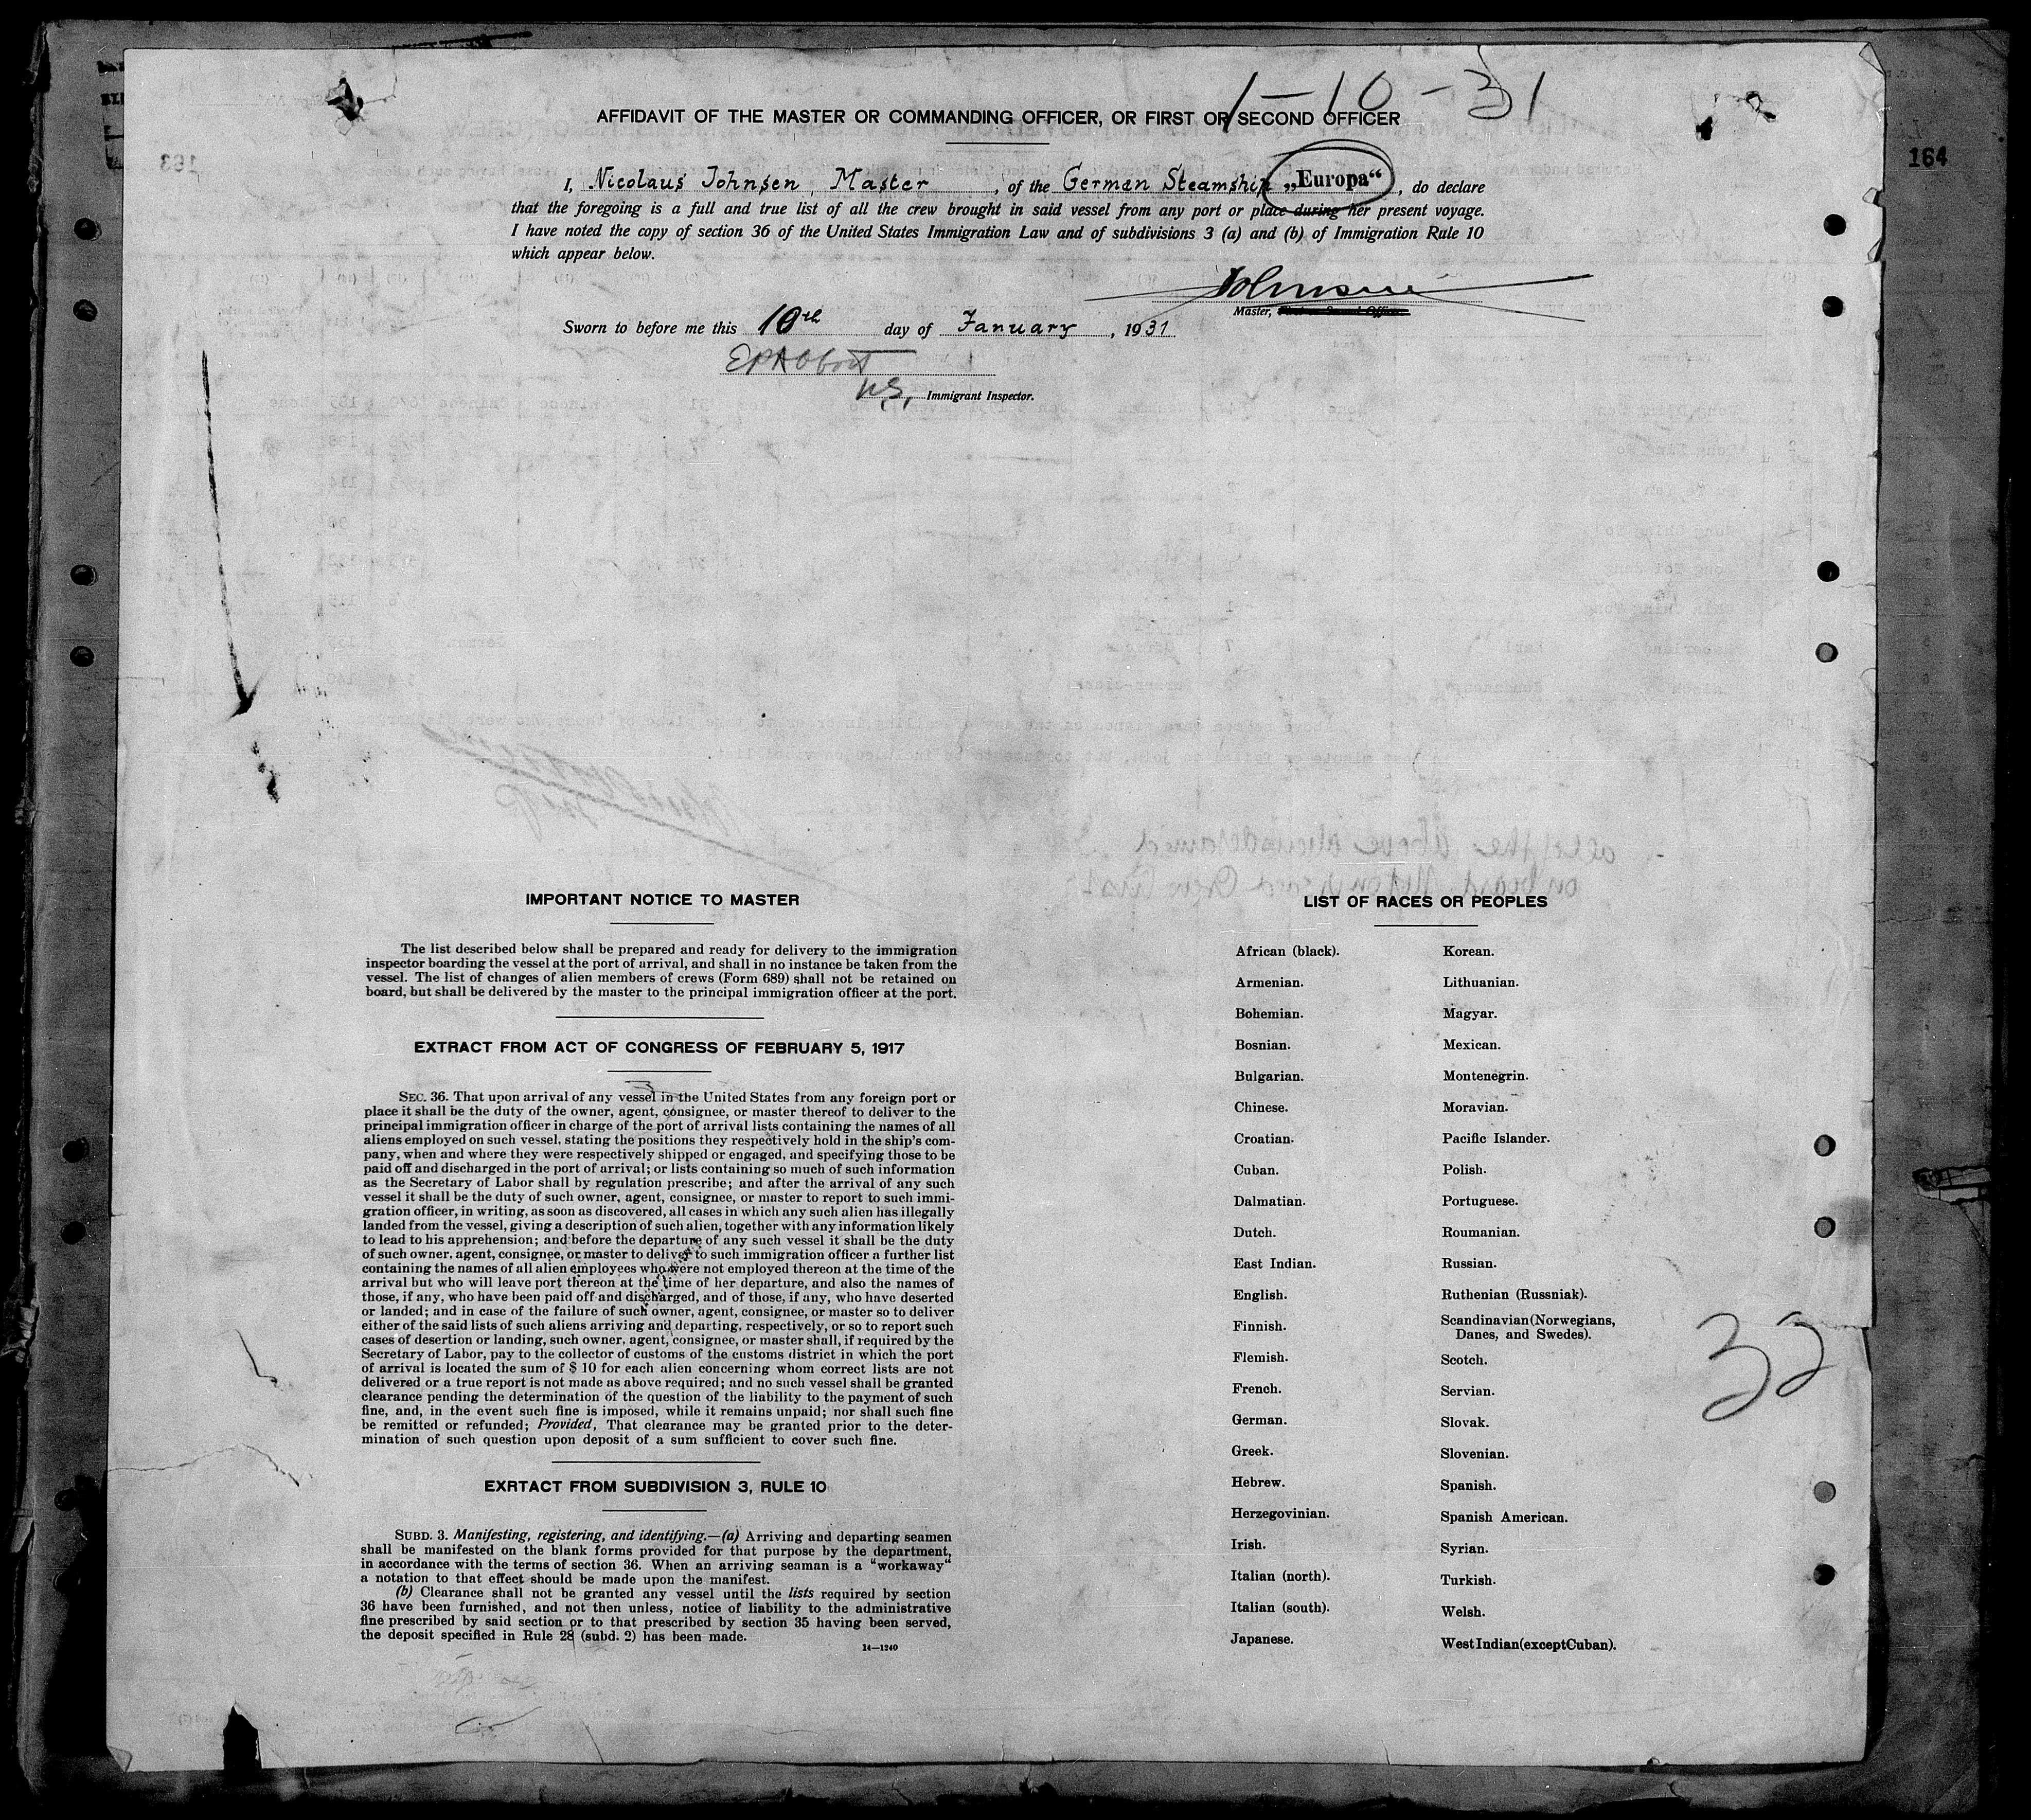 1-10-31
AFFIDAVIT OF THE MASTER OR COMMANDING OFFICER, OR FIRST OR SECOND OFFICER
163
164
I, Nicolaus Johnsen, Master, of the German Steamship „Europa“, do declare
that the foregoing is a full and true list of all the crew brought in said vessel from any port or place during her present voyage.
I have noted the copy of section 36 of the United States Immigration Law and of subdivisions 3 (a) and (b) of Immigration Rule 10
which appear below.
Johnsen
Master, First or Second Officer.
Sworn to before me this 10th day of January, 1931
E P Abbott
U.S. Immigrant Inspector.
all the above
on board
IMPORTANT NOTICE TO MASTER
The list described below shall be prepared and ready for delivery to the immigration
inspector boarding the vessel at the port of arrival, and shall in no instance be taken from the
vessel. The list of changes of alien members of crews (Form 689) shall not be retained on
board, but shall be delivered by the master to the principal immigration officer at the port.
EXTRACT FROM ACT OF CONGRESS OF FEBRUARY 5, 1917
SEC. 36. That upon arrival of any vessel in the United States from any foreign port or
place it shall be the duty of the owner, agent, consignee, or master thereof to deliver to the
principal immigration officer in charge of the port of arrival lists containing the names of all
aliens employed on such vessel, stating the positions they respectively hold in the ship's com-
pany, when and where they were respectively shipped or engaged, and specifying those to be
paid off and discharged in the port of arrival; or lists containing so much of such information
as the Secretary of Labor shall by regulation prescribe; and after the arrival of any such
vessel it shall be the duty of such owner, agent, consignee, or master to report to such immi-
gration officer, in writing, as soon as discovered, all cases in which any such alien has illegally
landed from the vessel, giving a description of such alien, together with any information likely
to lead to his apprehension; and before the departure of any such vessel it shall be the duty
of such owner, agent, consignee, or master to deliver to such immigration officer a further list
containing the names of all alien employees who were not employed thereon at the time of the
arrival but who will leave port thereon at the time of her departure, and also the names of
those, if any, who have been paid off and discharged, and of those, if any, who have deserted
or landed; and in case of the failure of such owner, agent, consignee, or master so to deliver
either of the said lists of such aliens arriving and departing, respectively, or so to report such
cases of desertion or landing, such owner, agent, consignee, or master shall, if required by the
Secretary of Labor, pay to the collector of customs of the customs district in which the port
of arrival is located the sum of $ 10 for each alien concerning whom correct lists are not
delivered or a true report is not made as above required; and no such vessel shall be granted
clearance pending the determination of the question of the liability to the payment of such
fine, and, in the event such fine is imposed, while it remains unpaid; nor shall such fine
be remitted or refunded; Provided, That clearance may be granted prior to the deter-
mination of such question upon deposit of a sum sufficient to cover such fine.
EXRTACT FROM SUBDIVISION 3, RULE 10
SUBD. 3. Manifesting, registering, and identifying.—(a) Arriving and departing seamen
shall be manifested on the blank forms provided for that purpose by the department,
in accordance with the terms of section 36. When an arriving seaman is a “workaway“
a notation to that effect should be made upon the manifest.
(b) Clearance shall not be granted any vessel until the lists required by section
36 have been furnished, and not then unless, notice of liability to the administrative
fine prescribed by said section or to that prescribed by section 35 having been served,
the deposit specified in Rule 28 (subd. 2) has been made.
14—1240
LIST OF RACES OR PEOPLES
African (black).
Armenian.
Bohemian.
Bosnian.
Bulgarian.
Chinese.
Croatian.
Cuban.
Dalmatian.
Dutch.
East Indian.
English.
Finnish.
Flemish.
French.
German.
Greek.
Hebrew.
Herzegovinian.
Irish.
Italian (north).
Italian (south).
Japanese.
Korean.
Lithuanian.
Magyar.
Mexican.
Montenegrin.
Moravian.
Pacific Islander.
Polish.
Portuguese.
Roumanian.
Russian.
Ruthenian (Russniak).
Scandinavian(Norwegians,
Danes, and Swedes).
Scotch.
Servian.
Slovak.
Slovenian.
Spanish.
Spanish American.
Syrian.
Turkish.
Welsh.
West Indian(except Cuban).
32